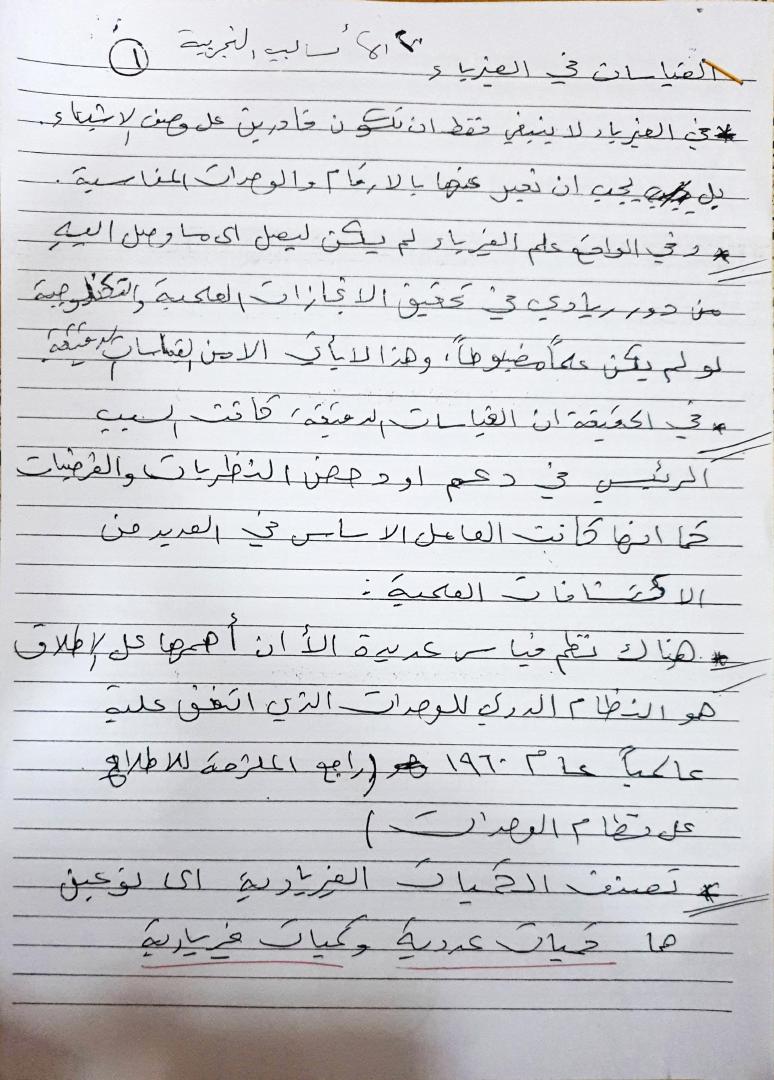 الأساليب التجريبية
١
القياسات في الفيزياء
* في الفيزياء لا ينبغي فقط ان نكون قادرين على وصف الاشياء.
بل يجب ان نعبر عنها بالارقام والوحدات المقاسية.
* وفي الواقع علم الفيزياء لم يكن ليصل الى ما وصل اليه
من دور ريادي في تحقيق الانجازات العلمية والتكنلوجية
لو لم يكن علماً مضبوطاً، وهذا لا يأتي الا من القياسات الدقيقة
* في الحقيقة ان القياسات الدقيقة، كانت السبب
الرئيسي في دعم او دحض النظريات والفرضيات
كما انها كانت العامل الاساس في العديد من
الاكتشافات العلمية :
* هناك نظم قياس عديدة الأ ان أهمها على الإطلاق
هو النظام الدولي للوحدات الذي اتفق علية
عالمياً عام ١٩٦٠ (راجع الملزمة للاطلاع
على نظام الوحدات)
* تصنف الكميات الفيزيائية الى نوعين
هما كميات عددية وكميات فيزيائية